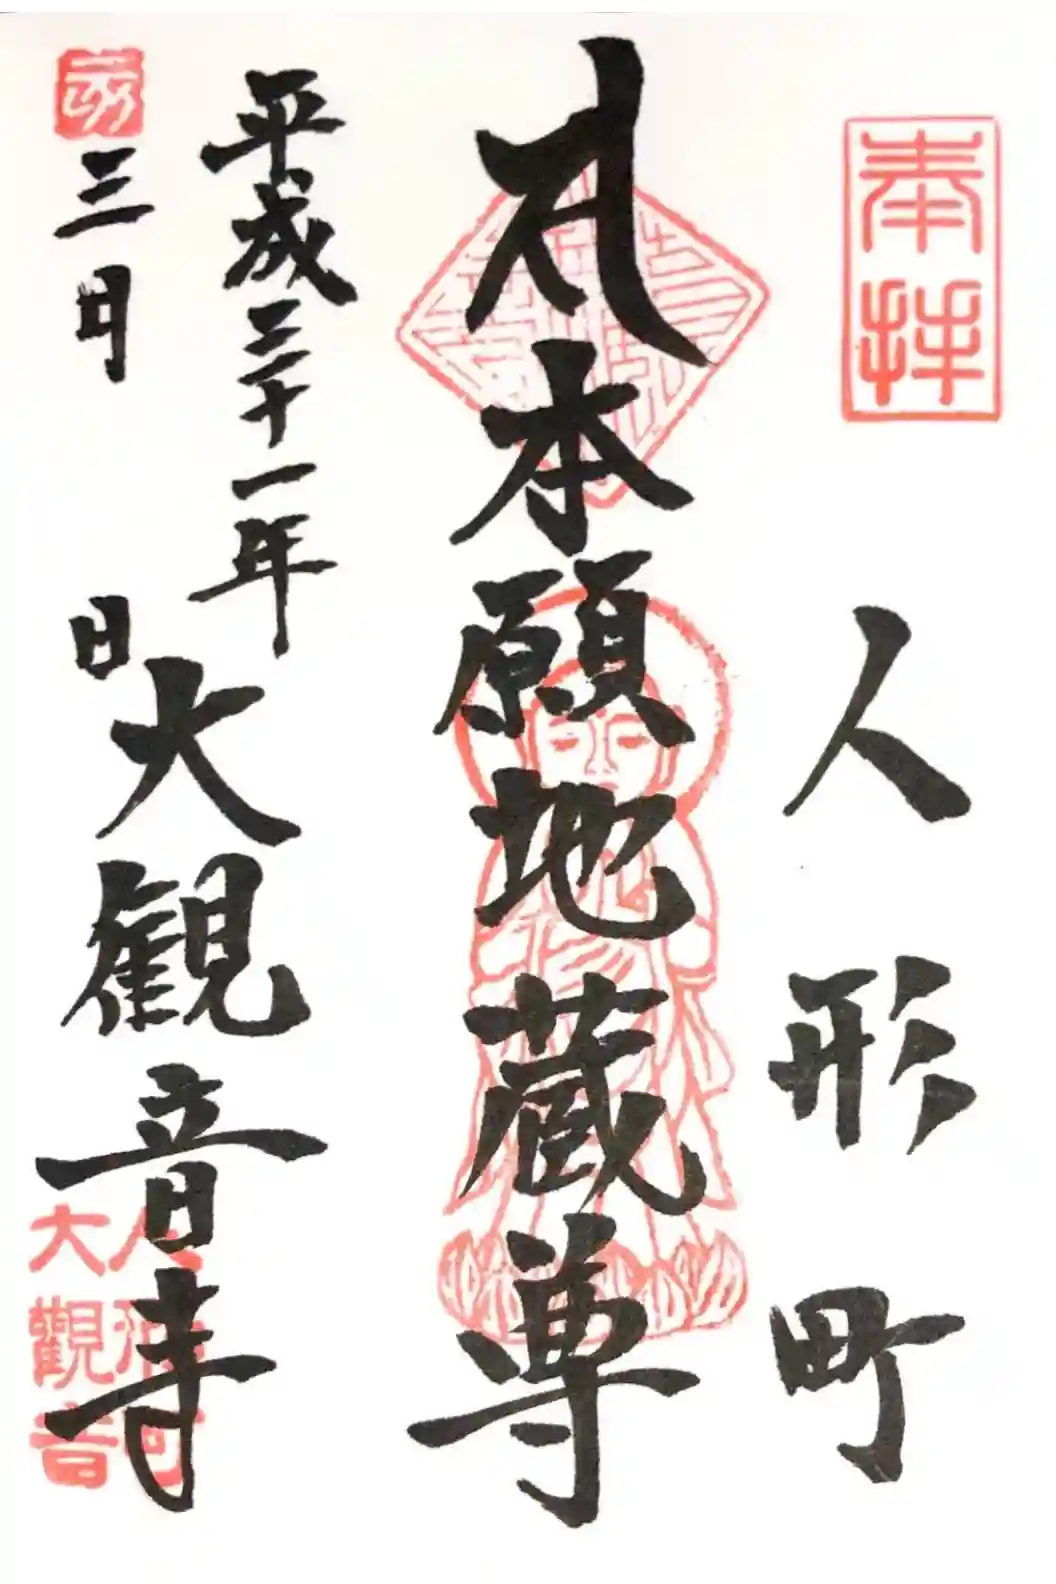 奉拝
人形町
本願地蔵尊
平成三十一年
三月 日
大観音寺
大觀音